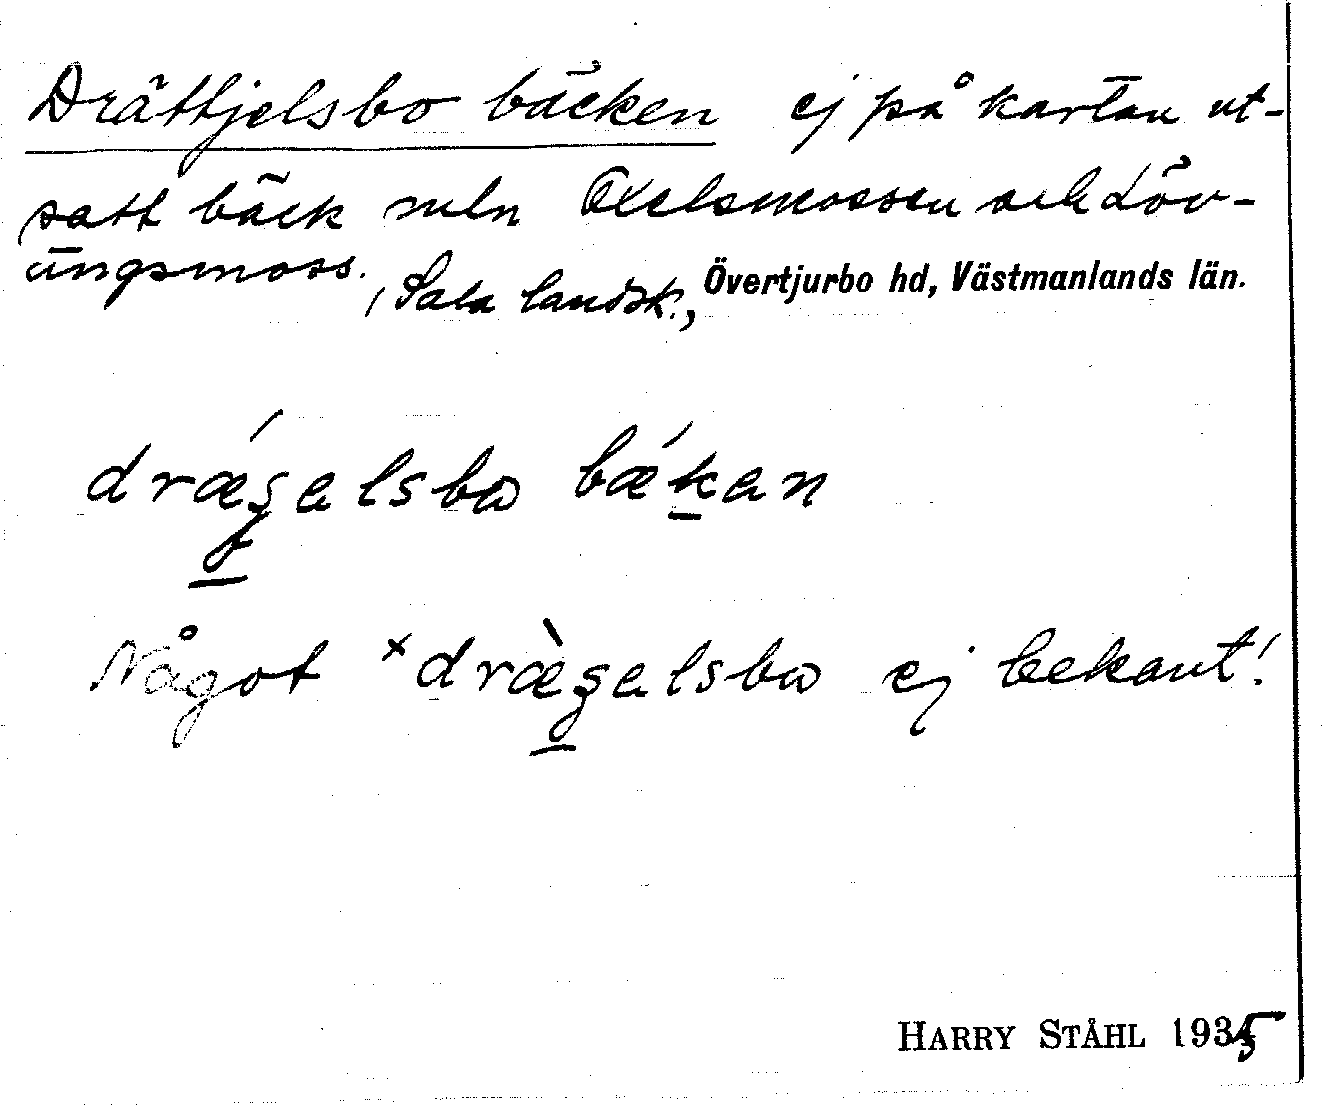 Drättjelsbo bäcken ej på kartan ut-
satt bäck mln Axelsmossen och Löv-
ängsmoss.
, Sala landsk., Övertjurbo hd, Västmanlands län.
drǽʒəlsbω bǽkən
Något ×dræ̀ʒəlsbω ej bekant!
HARRY STÅHL 1935